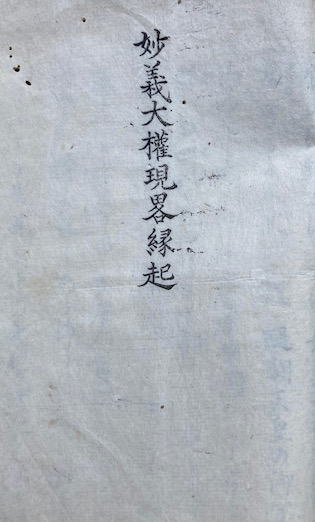 妙義大權現畧縁起